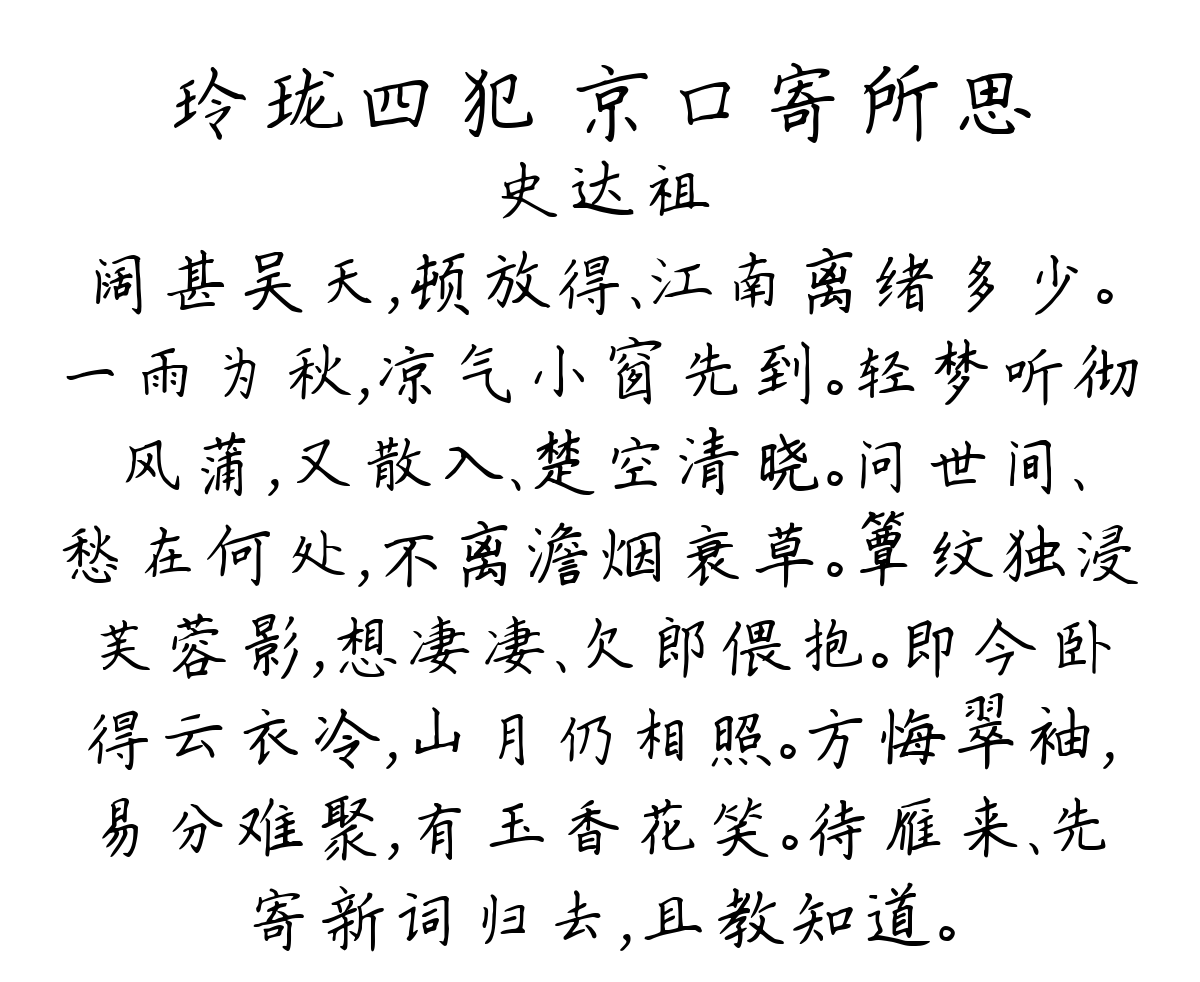 玲珑四犯 京口寄所思
史达祖
阔甚吴天,顿放得、江南离绪多少。
一雨为秋,凉气小窗先到。轻梦听彻
风蒲,又散入、楚空清晓。问世间、
愁在何处,不离澹烟衰草。簟纹独浸
芙蓉影,想凄凄、欠郎偎抱。即今卧
得云衣冷,山月仍相照。方悔翠袖,
易分难聚,有玉香花笑。待雁来、先
寄新词归去,且教知道。